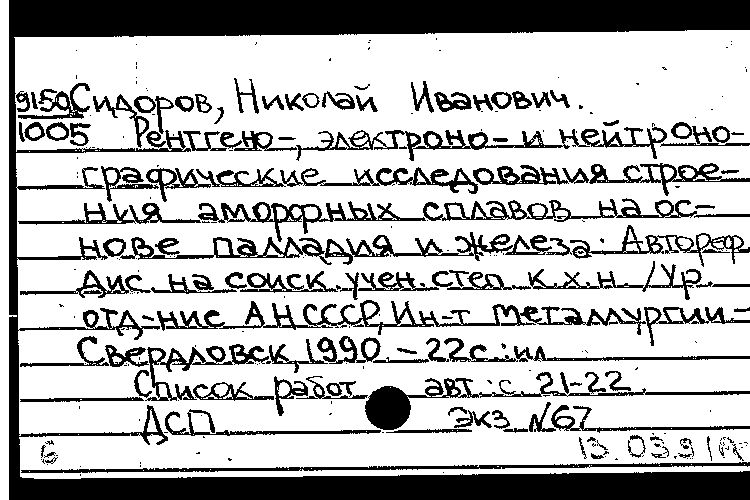 9150 Сидоров, Николай Иванович.
1005 Рентгено-, электроно- и нейтроно-
графические исследования строе-
ния аморфных сплавов на ос-
нове палладия и железа: Автореф.
Дис. на соиск. учен. степ. к.х.н. /Ур.
отд-ние АН СССР, Ин-т металлургии.-
Свердловск, 1990. - 22с.:ил.
Список работ авт.: с. 21-22.
ДСП. Экз №67
6 13.03.91